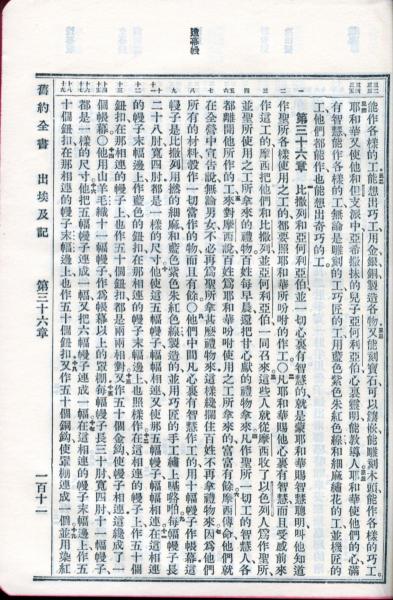 造幕幔
能作各樣的工能想出巧工用金銀銅製造各物又能刻寶石可以鑲嵌能雕刻木頭能作各樣的巧工
耶和華又使他和但支派中亞希撒抹的兒子亞何利亞伯心裏靈明能教導人耶和華使他們的心滿
有智慧能作各樣的工無論是雕刻的工巧匠的工用藍色紫色朱紅色線和細麻繡花的工並機匠的
工他們都能作也能想出奇巧的工
第三十六章 比撒列和亞何利亞伯並一切心裏有智慧的就是蒙耶和華賜智慧聰明叫他知道
作聖所各樣使用之工的都要照耶和華所吩咐的作工〇凡耶和華賜他心裏有智慧而且受感前來
作這工的摩西把他們和比撒列並亞何利亞伯一同召來這些人就從摩西收了以色列人爲作聖所
並聖所使用之工所拿來的禮物百姓每早晨還把甘心獻的禮物拿來凡作聖所一切工的智慧人各
都離開他所作的工來對摩西說百姓爲耶和華吩咐使用之工所拿來的富富有餘摩西傳命他們就
在全營中宣告說無論男女不必再爲聖所拿甚麼禮物來這樣纔攔住百姓不再拿禮物來因爲他們
所有的材料彀作一切當作的物而且有餘〇他們中間凡心裏有智慧作工的用十幅幔子作帳幕這
幔子是比撒列用撚的細麻和藍色紫色朱紅色線製造的並用巧匠的手工繡上𠼻嚕咟每幅幔子長
二十八肘寬四肘都是一樣的尺寸他使這五幅幔子幅幅相連又使那五幅幔子幅幅相連在這相連
的幔子末幅邊上作藍色的鈕扣在那相連的幔子末幅邊上也照樣作在這相連的幔子上作五十個
鈕扣在那相連的幔子上也作五十個鈕扣都是兩兩相對又作五十個金鈎使幔子相連這纔成了一
個帳幕〇他用山羊毛織十一幅幔子作爲帳幕以上的罩棚每幅幔子長三十肘寬四肘十一幅幔子
都是一樣的尺寸他把五幅幔子連成一幅又把六幅幔子連成一幅在這相連的幔子末幅邊上作五
十個鈕扣在那相連的幔子末幅邊上也作五十個鈕扣又作五十個銅鈎使罩棚連成一個並用染紅
舊約全書 出埃及記 第三十六章 一百十一